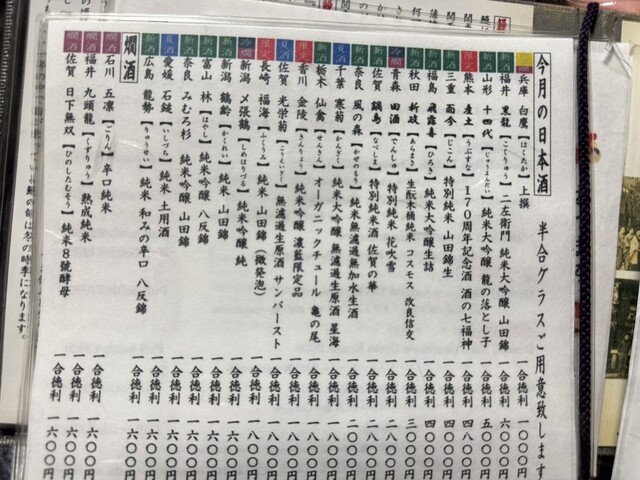 今月の日本酒 半合グラスご用意致します
兵庫 白鷹【はくたか】上撰 一合徳利 一000円
新酒 福井 黒龍【こくりゅう】二左衛門 純米大吟醸 山田錦 一合徳利 六000円
新酒 山形 十四代【じゅうよんだい】純米大吟醸 龍の落とし子 一合徳利 五000円
限定 熊本 産土【うぶすな】170周年記念酒 酒の七福神 一合徳利 四八00円
新酒 三重 而今【じこん】特別純米 山田錦生 一合徳利 四000円
新酒 福島 飛露喜【ひろき】純米大吟醸生詰 一合徳利 四000円
新酒 秋田 新政【あらまさ】生酛木桶純米 コスモス 改良信交 一合徳利 三000円
冷燗 青森 田酒【でんしゅ】特別純米 花吹雪 一合徳利 二八00円
新酒 佐賀 鍋島【なべしま】特別純米酒 佐賀の華 一合徳利
新酒 奈良 風の森【かぜのもり】純米無濾過無加水生酒 一合徳利 二000円
夏酒 千葉 寒菊【かんぎく】純米大吟醸 無濾過生原酒 星海 一合徳利
新酒 栃木 仙禽【せんきん】オーガニックナチュール 亀の尾 一合徳利 一八00円
限定 香川 金陵【きんりょう】純米吟醸 濃藍限定品 一合徳利 一八00円
夏酒 佐賀 光栄菊【こうえいぎく】無濾過生原酒 サンバースト 一合徳利 一八00円
限定 長崎 福海【ふくうみ】純米 山田錦(微発泡) 一合徳利 一八00円
冷燗 新潟 〆張鶴【しめはりづる】純米吟醸 純 一合徳利 一八00円
新酒 新潟 鶴齢【かくれい】純米 山田錦 一合徳利 一六00円
新酒 富山 林【はやし】純米吟醸 八反錦 一合徳利 一六00円
新酒 奈良 みむろ杉 純米吟醸 山田錦 一合徳利 一六00円
夏酒 愛媛 石鎚【いしづち】純米 土用酒 一合徳利 一六00円
新酒 広島 龍勢【りゅうせい】純米 和みの辛口 八反錦 一合徳利 一六00円
燗酒
燗酒 石川 五凛【ごりん】辛口純米 一合徳利 一六00円
燗酒 福井 九頭龍【くずりゅう】熟成純米 一合徳利 一六00円
燗酒 佐賀 日下無双【ひのしたむそう】純米8號酵母 一合徳利 一六00円
鮪の旬は冬の時季になります。